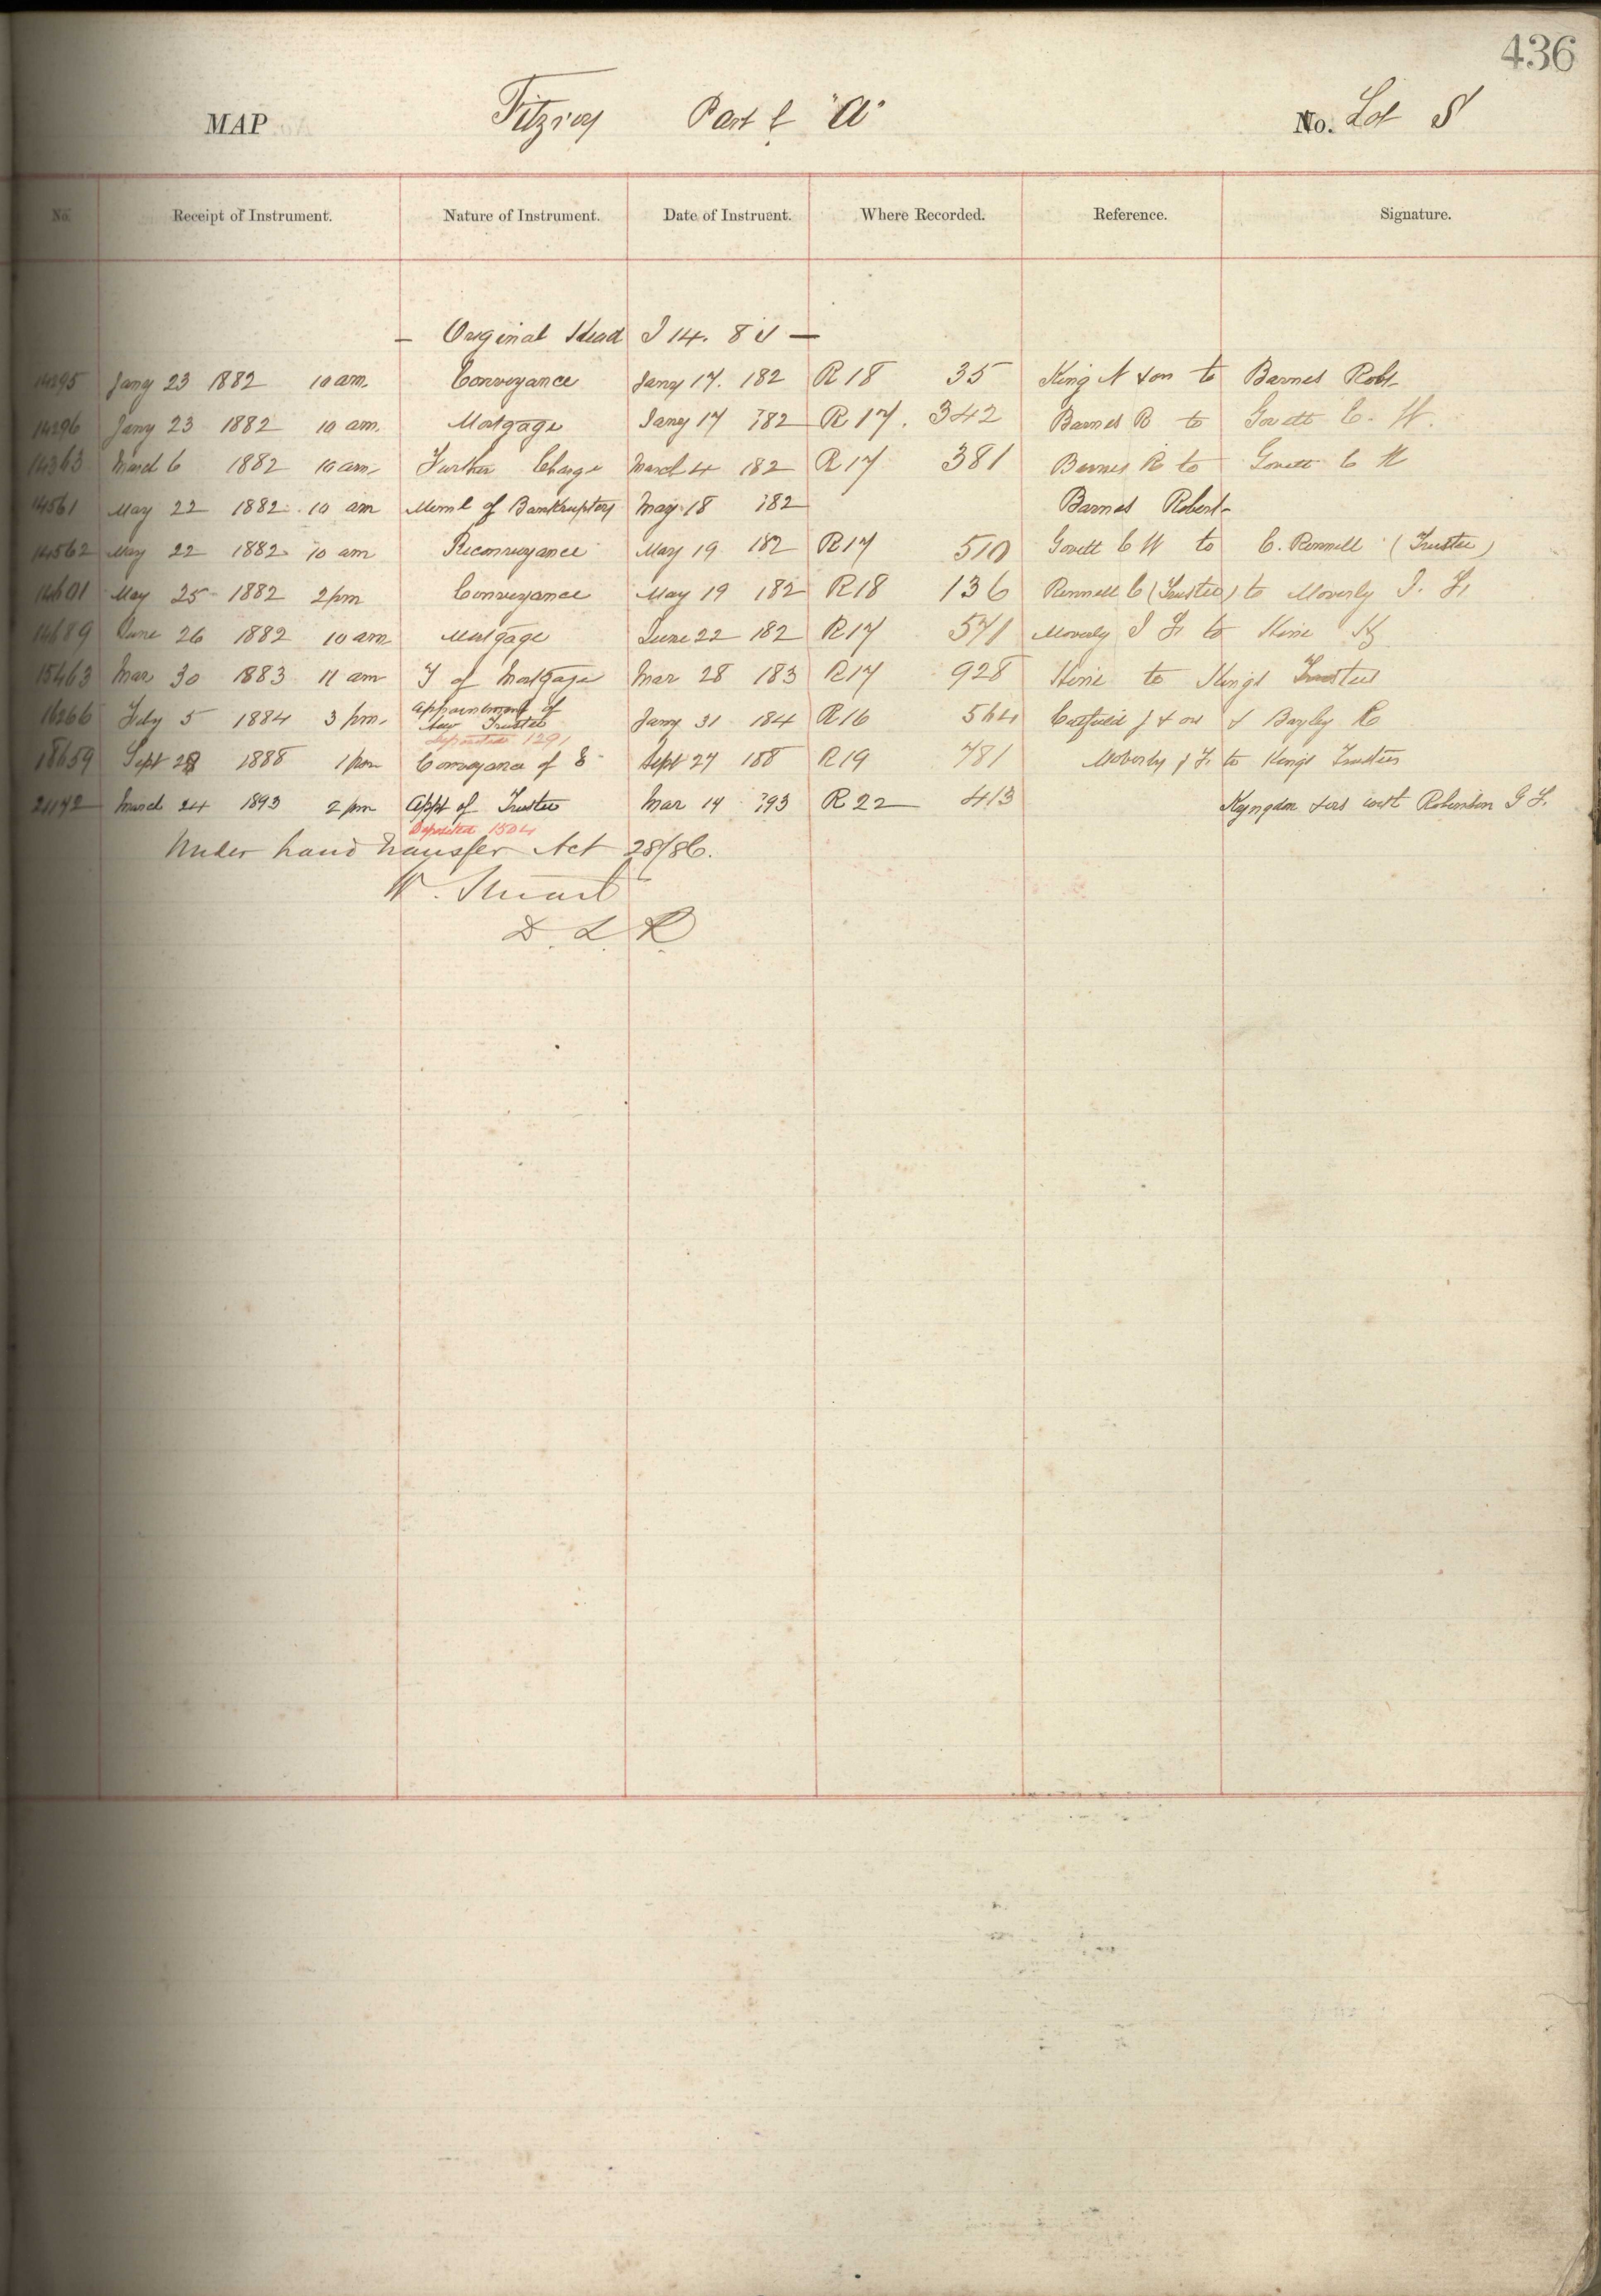 436
MAP Fitzroy Part of "A" No. Lot 8
No. Receipt of Instrument. Nature of Instrument. Date of Instruent. Where Recorded. Reference. Signature.
— Original Head I 14. —
14295 Jany 23 1882 10 am. Conveyance Jany 17. '82 R 18 35 King N & on to Barnes Robt
14296 Jany 23 1882 10 am. Mortgage Jany 17 '82 R 17. 342 Barnes R to Govett C. W.
14363 March 6 1882 10 am Further Charge March 4 '82 R 17 381 Barnes R to Govett C W
14561 May 22 1882. 10 am Meml of Bankruptcy May 18 '82 Barnes Robert
14562 May 22 1882 10 am Reconveyance May 19 '82 R17 510 Govett C W to C. Rennell (Trustee)
14601 May 25 1882 2 pm Conveyance May 19 '82 R18 136 Rennell C (Trustee) to Moverly J. F.
14689 June 26 1882 10 am Mortgage June 22 '82 R17 571 Moverly J F. to Hine
15463 Mar 30 1883 11 am T of Mortgage Mar 28 '83 R17 928 Hine to Kings Trustees
16266 July 5 1884 3 pm. Appointment of
New Trustee Jany 31 '84 R16 564 & on & Bayley R
Deposited 1291
18659 Sept 28 1888 1 pm Conveyance of E Sept 27 '88 R19 781 Moverly J F. to Kings Trustees
21192 March 24 1893 2 pm Appt of Trustee Mar 14 '93 R 22 413 Kyngdon & ors with Robinson G F.
Deposited 1504
Under Land Transfer Act 28/86.
W. Stuart
D. L. R.